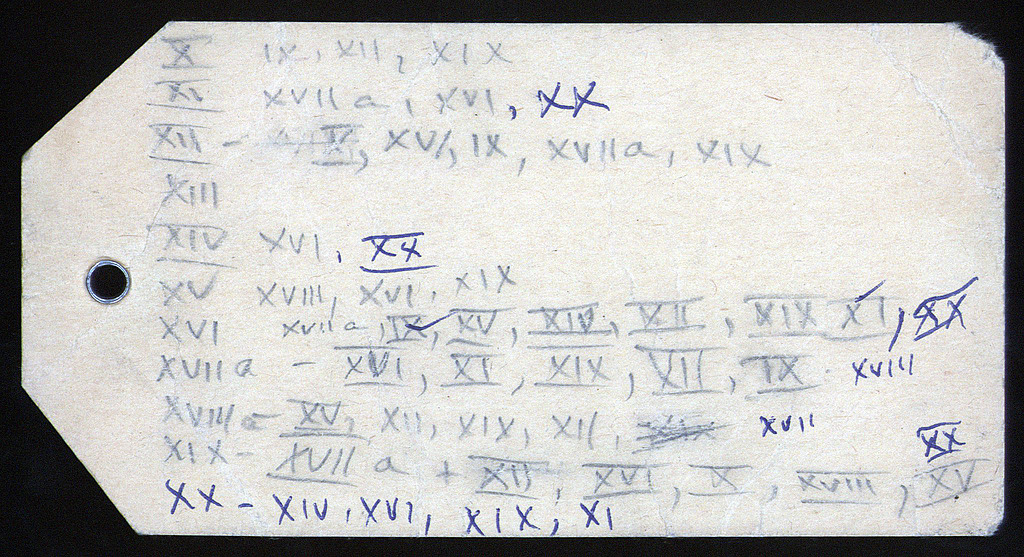 X IX, XII, XIX
XI XVII a, XVI, XX
XII - X, XVI, IX, XVII a, XIX
XIII
XIV XVI, XX
XV XVIII, XVI, XIX
XVI XVII a, IX, XV, XIV, XII, XIX XI, XX
XVII a - XVI, XI, XIX, XII, IX. XVIII
XVIII a - XV, XII, XIX, XII, XVII
XIX - XVII a + XII, XVI, X, XVIII, XV XX
XX - XIV, XVI, XIX, XI